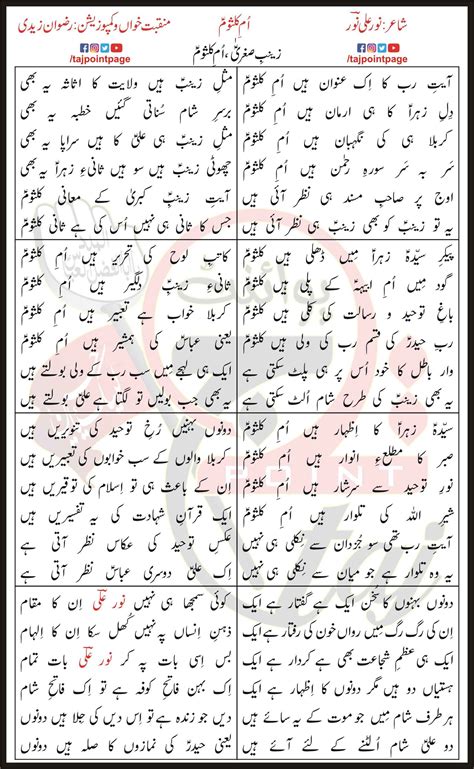 شاعر: نور علی نورؔ
اُم کلثومؑ
منقبت خواں و کمپوزیشن: رضوان زیدی
/tajpointpage
زینبِ صغریٰؑ، اُم کلثومؑ
/tajpointpage
آیتِ رب کا اِک عنوان ہیں اُم کلثومؑ مثلِ زینبؑ ہیں ولایت کا اثاثہ یہ بھی
دلِ زہراؑ کا ہی ارمان ہیں اُم کلثومؑ برسرِ شام سُناتی گئیں خطبہ یہ بھی
کربلا ہی کی نگہبان ہیں اُم کلثومؑ مثلِ زینبؑ ہی علیؑ کا ہیں سراپا یہ بھی
سر بہ سر سورہِ رحمٰن ہیں اُم کلثومؑ چھوٹی زینبؑ ہیں سو ہیں ثانیءِ زہراؑ یہ بھی
اوج پر صاحبِ مسند ہی نظر آئی ہیں آیتِ زینبِؑ کبریٰ کے معانی کلثومؑ
یہ تو زینبؑ کو بھی زینبؑ ہی نظر آئی ہیں جس کا ثانی ہی نہیں اُس کی ہے ثانی کلثومؑ
پیکرِ سیّدہ زہراؑ میں ڈھلی ہیں کلثومؑ کاتبِ لوح کی تحریر ہیں اُم کلثومؑ
گود میں اُم ابیہاؑ کے پلی ہیں کلثومؑ ثانیءِ زینبِؑ دلگیر ہیں اُم کلثومؑ
باغِ توحید و رسالت کی کلی ہیں کلثومؑ کربلا خواب ہے تعبیر ہیں اُم کلثومؑ
ربِ حیدرؑ کی قسم رب کی ولی ہیں کلثومؑ یعنی عباسؑ کی ہمشیر ہیں اُم کلثومؑ
وار باطل کا خود اُس پر ہی پلٹ سکتی ہے ایک ہی لہجے میں سب رب کے ولی بولتے ہیں
یہ بھی زینبؑ کی طرح شام اُلٹ سکتی ہے یہ بھی جب بولیں تو لگتا ہے علیؑ بولتے ہیں
سیّدہ زہراؑ کا اظہار ہیں اُم کلثومؑ دونوں بہنیں رُخِ توحید کی تنویریں ہیں
صبر کا مطلعءِ انوار ہیں اُم کلثومؑ کربلا والوں کے سب خوابوں کی تعبیریں ہیں
نغمہِ توحید سے سرشار ہیں اُم کلثومؑ اِن کے باعث ہی تو اِسلام کی توقیریں ہیں
شیرِ اللہ کی تلوار ہیں اُم کلثومؑ ایک قرآنِ شہادت کی یہ تفسیریں ہیں
آیتِ رب تھی سو جُزدان سے نکلی ہی نہیں حیدریؑ عزم کی عکاس نظر آتی ہے
یہ وہ تلوار ہے جو میان سے نکلی ہی نہیں اِک علیؑ دوسری عباسؑ نظر آتی ہے
دونوں بہنوں کا سُخن ایک ہے گفتار ہے ایک کوئی سمجھا ہی نہیں نورِ علیؔ اِن کا مقام
اِن کی رگ رگ میں رواں خون کی رفتار ہے ایک ذہنِ اِنساں پہ نہیں کُھل سکا اِن کا اِلہام
ایک ہی عظمِ شجاعت بھی ہے کردار ہے ایک بس اِسی بات پہ کر نورِ علیؔ بات تمام
ہستیاں دو ہیں مگر دونوں کا معیار ہے ایک ایک ہے فاتحِ کوفہ تو ہے اِک فاتحِ شام
ہر طرف شام میں جو موت کے سائے ہیں دین جو زندہ ہے تو اِس کی وجہ ہیں دونوں
دو علیؑ شام اُلٹنے کے لئے آئے ہیں یعنی حیدرؑ کی نمازوں کا صلہ ہیں دونوں